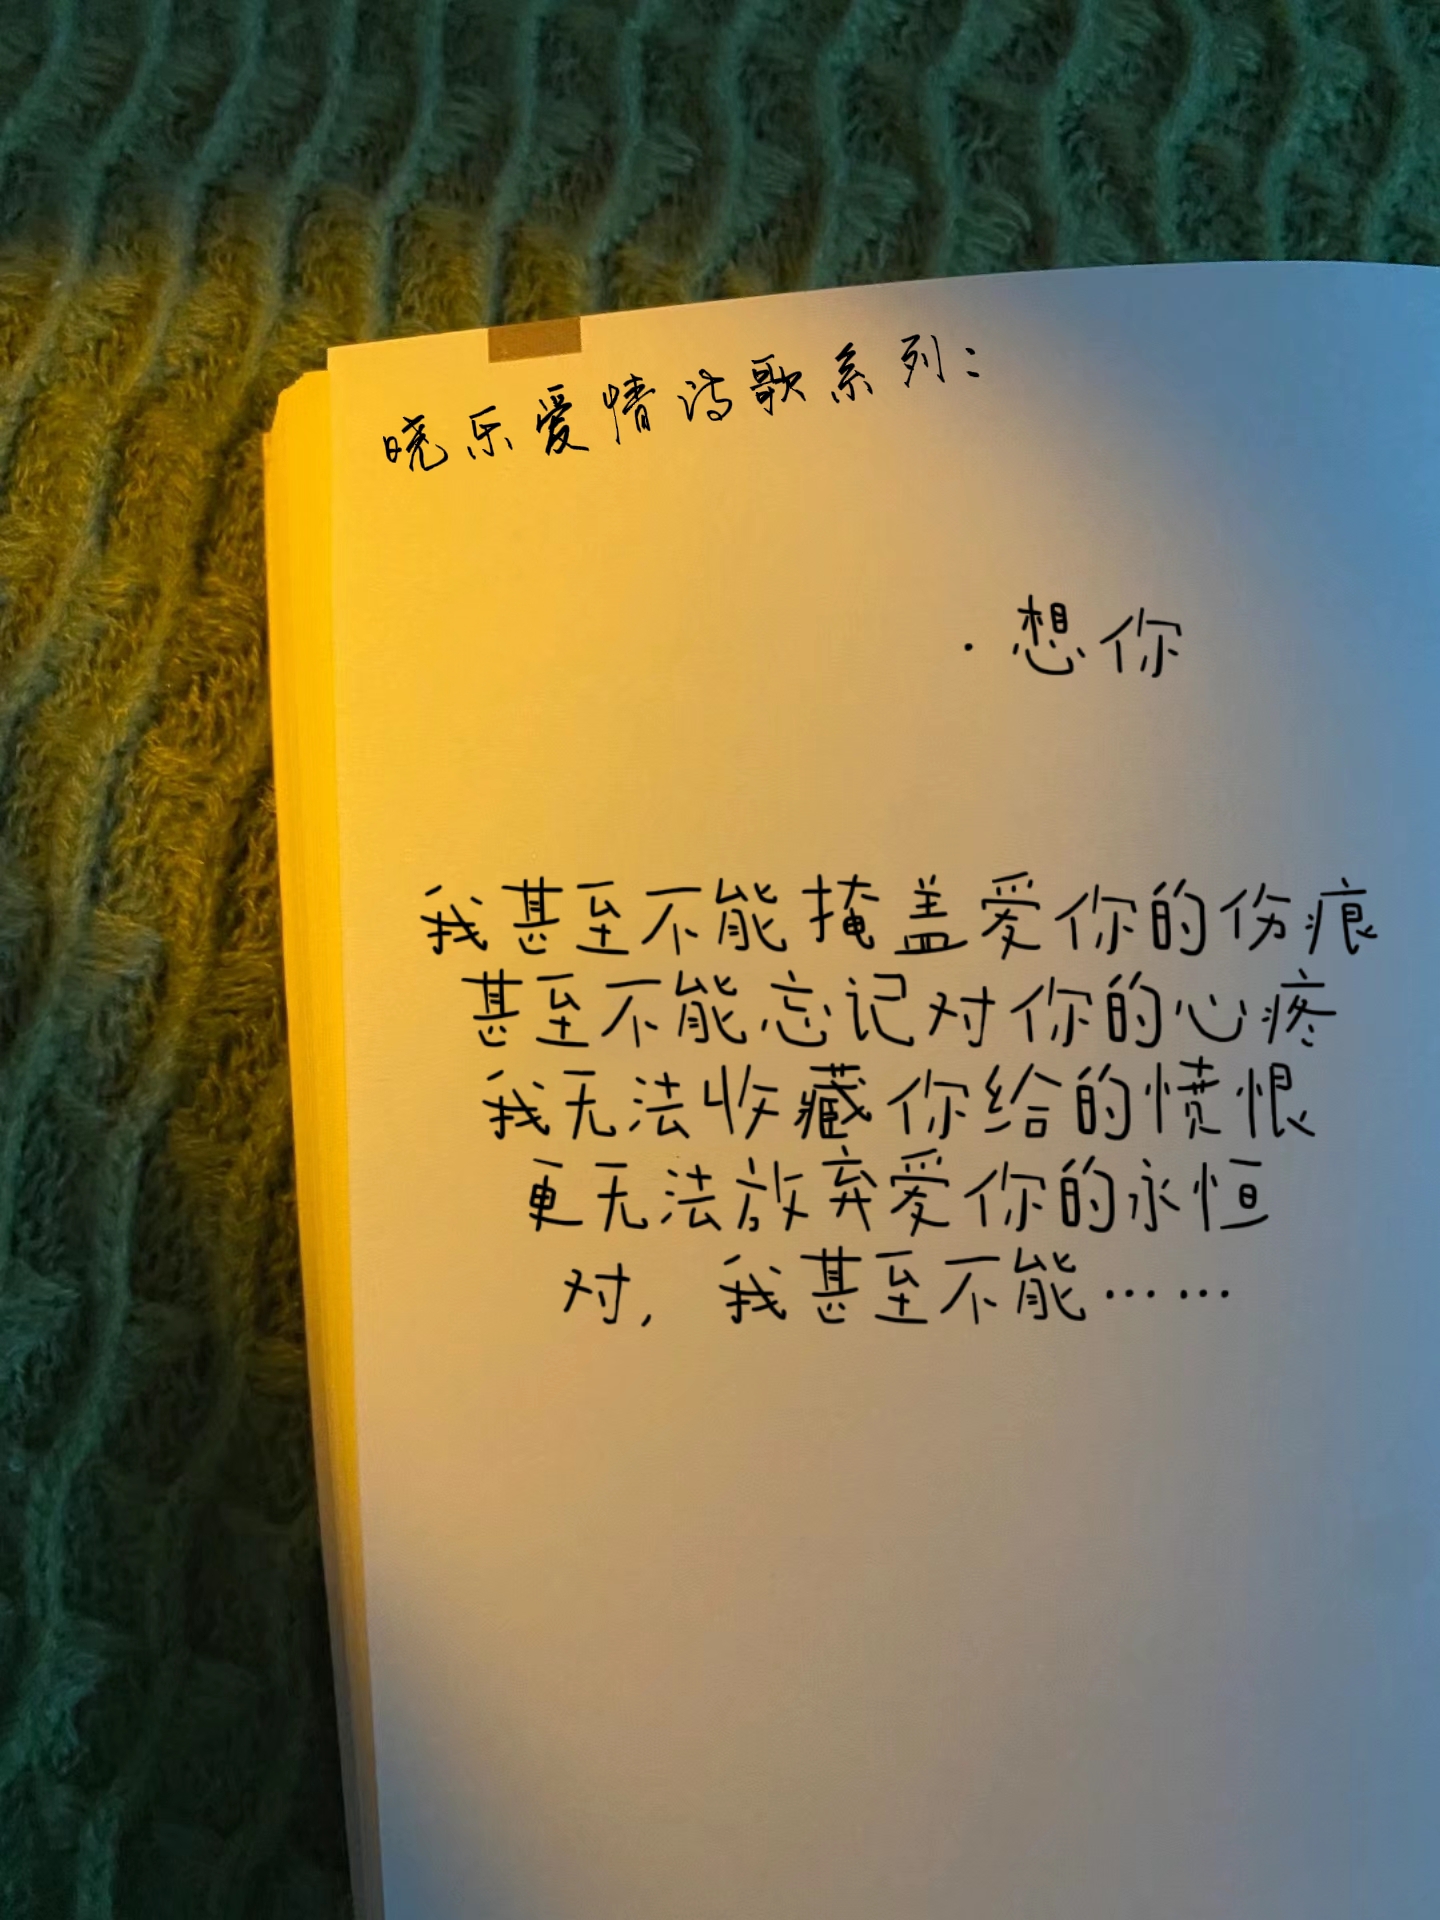 晓乐爱情诗歌系列：
·想你
我甚至不能掩盖爱你的伤痕
甚至不能忘记对你的心疼
我无法收藏你给的愤恨
更无法放弃爱你的永恒
对，我甚至不能……